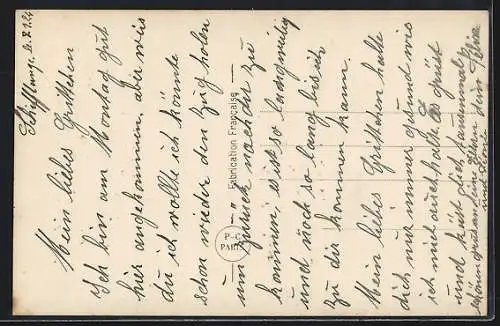 Schifflange, d. 8.1.24
Mein liebes Gritchen
Ich bin am Montag gut
hier angekommen aber weis
du ich wollte ich könnte
schon wieder den Zug holen
um zurück nach dir zu
kommen, es ist so langweilig
und noch so lang bis ich
zu dir kommen kann.
Mein liebes Gritchen halte
dich nur immer gesund wie
ich mich auch halte, es grüst
und küst dich tausenmal
schönn grus an deine Eltern dein
und Leonie
Fabrication Française
P-C
PARIS